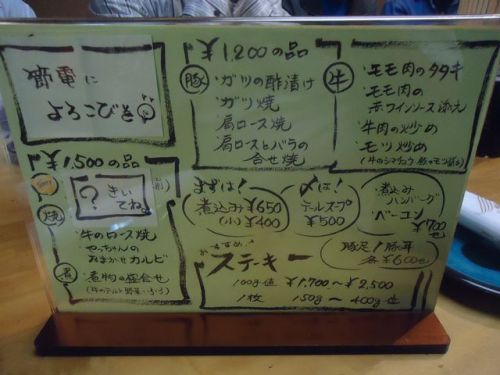 節電に
よろこびを
¥1,200の品
豚
・ガツの酢漬け
・ガツ焼
・肩ロース焼
・肩ロースとバラの
合せ焼
牛
・モモ肉のタタキ
・モモ肉の
赤ワインソース添え
・牛肉の炒め
・モツ炒め
¥1,500の品
？きい
てね。
焼
・牛のロース焼
・やっちゃんの
おまかせカルビ
煮
・煮物の盛合せ
まずは！
煮込み ¥650
(小) ¥400
〆は！
テールスープ
¥500
・煮込み
ハンバーグ
・ベーコン
¥700
豚足！豚耳
各¥600
おすすめ
ステーキ
100g・値 ¥1,700～¥2,500
1枚 150g～400g位